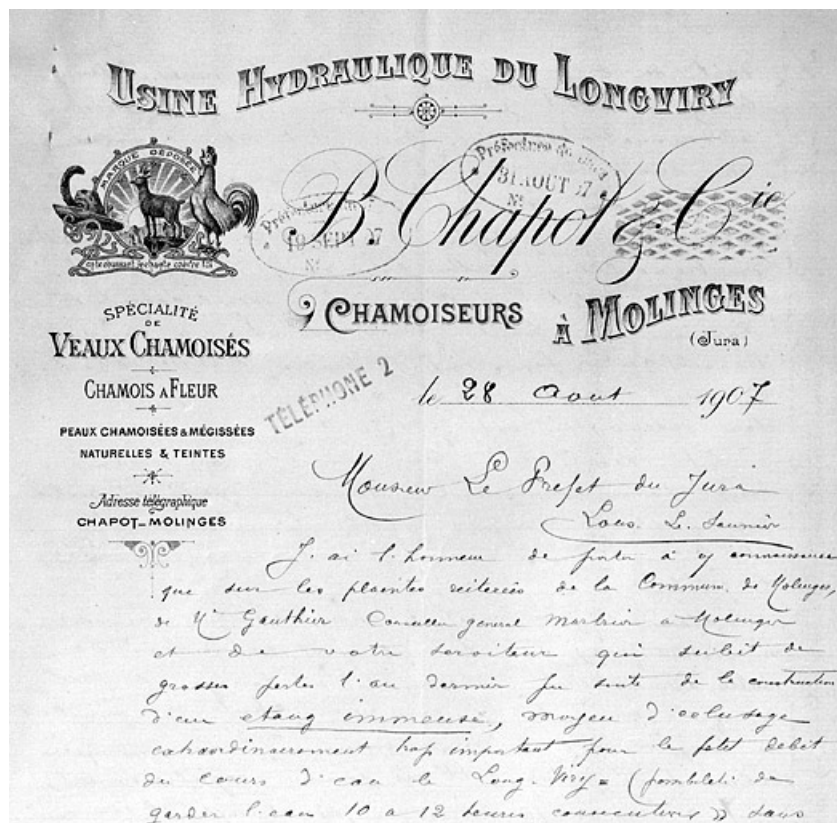 USINE HYDRAULIQUE DU LONGVIRY
MARQUE DÉPOSÉE
Préfecture du Jura
31 AOUT 07
No
Préfecture du
19 SEPT 07
No
B. Chapot & Cie
CHAMOISEURS
À MOLINGES
(Jura)
SPÉCIALITÉ
DE
VEAUX CHAMOISÉS
CHAMOIS A FLEUR
PEAUX CHAMOISÉES & MÉGISSÉES
NATURELLES & TEINTES
Adresse télégraphique
CHAPOT_MOLINGES
TÉLÉPHONE 2
le 28 Aout 1907
Monsieur Le Prefet du Jura
Lons. L. Saunier
J. ai l. honneur de porter à connaissance
que sur les plaintes réiterées de la Commune de Molinges,
de Mr Gauthier Conseiller general Marbrier a Molinges
et de votre serviteur qui subit de
grosses pertes l'an dernier par suite de la construction
d'un etang immense, moyen d'eclusage
extraordinairement trop important pour le petit debit
du cours d'eau le Long-Viry = (de
garder l'eau 10 a 12 heures consecutives) dans